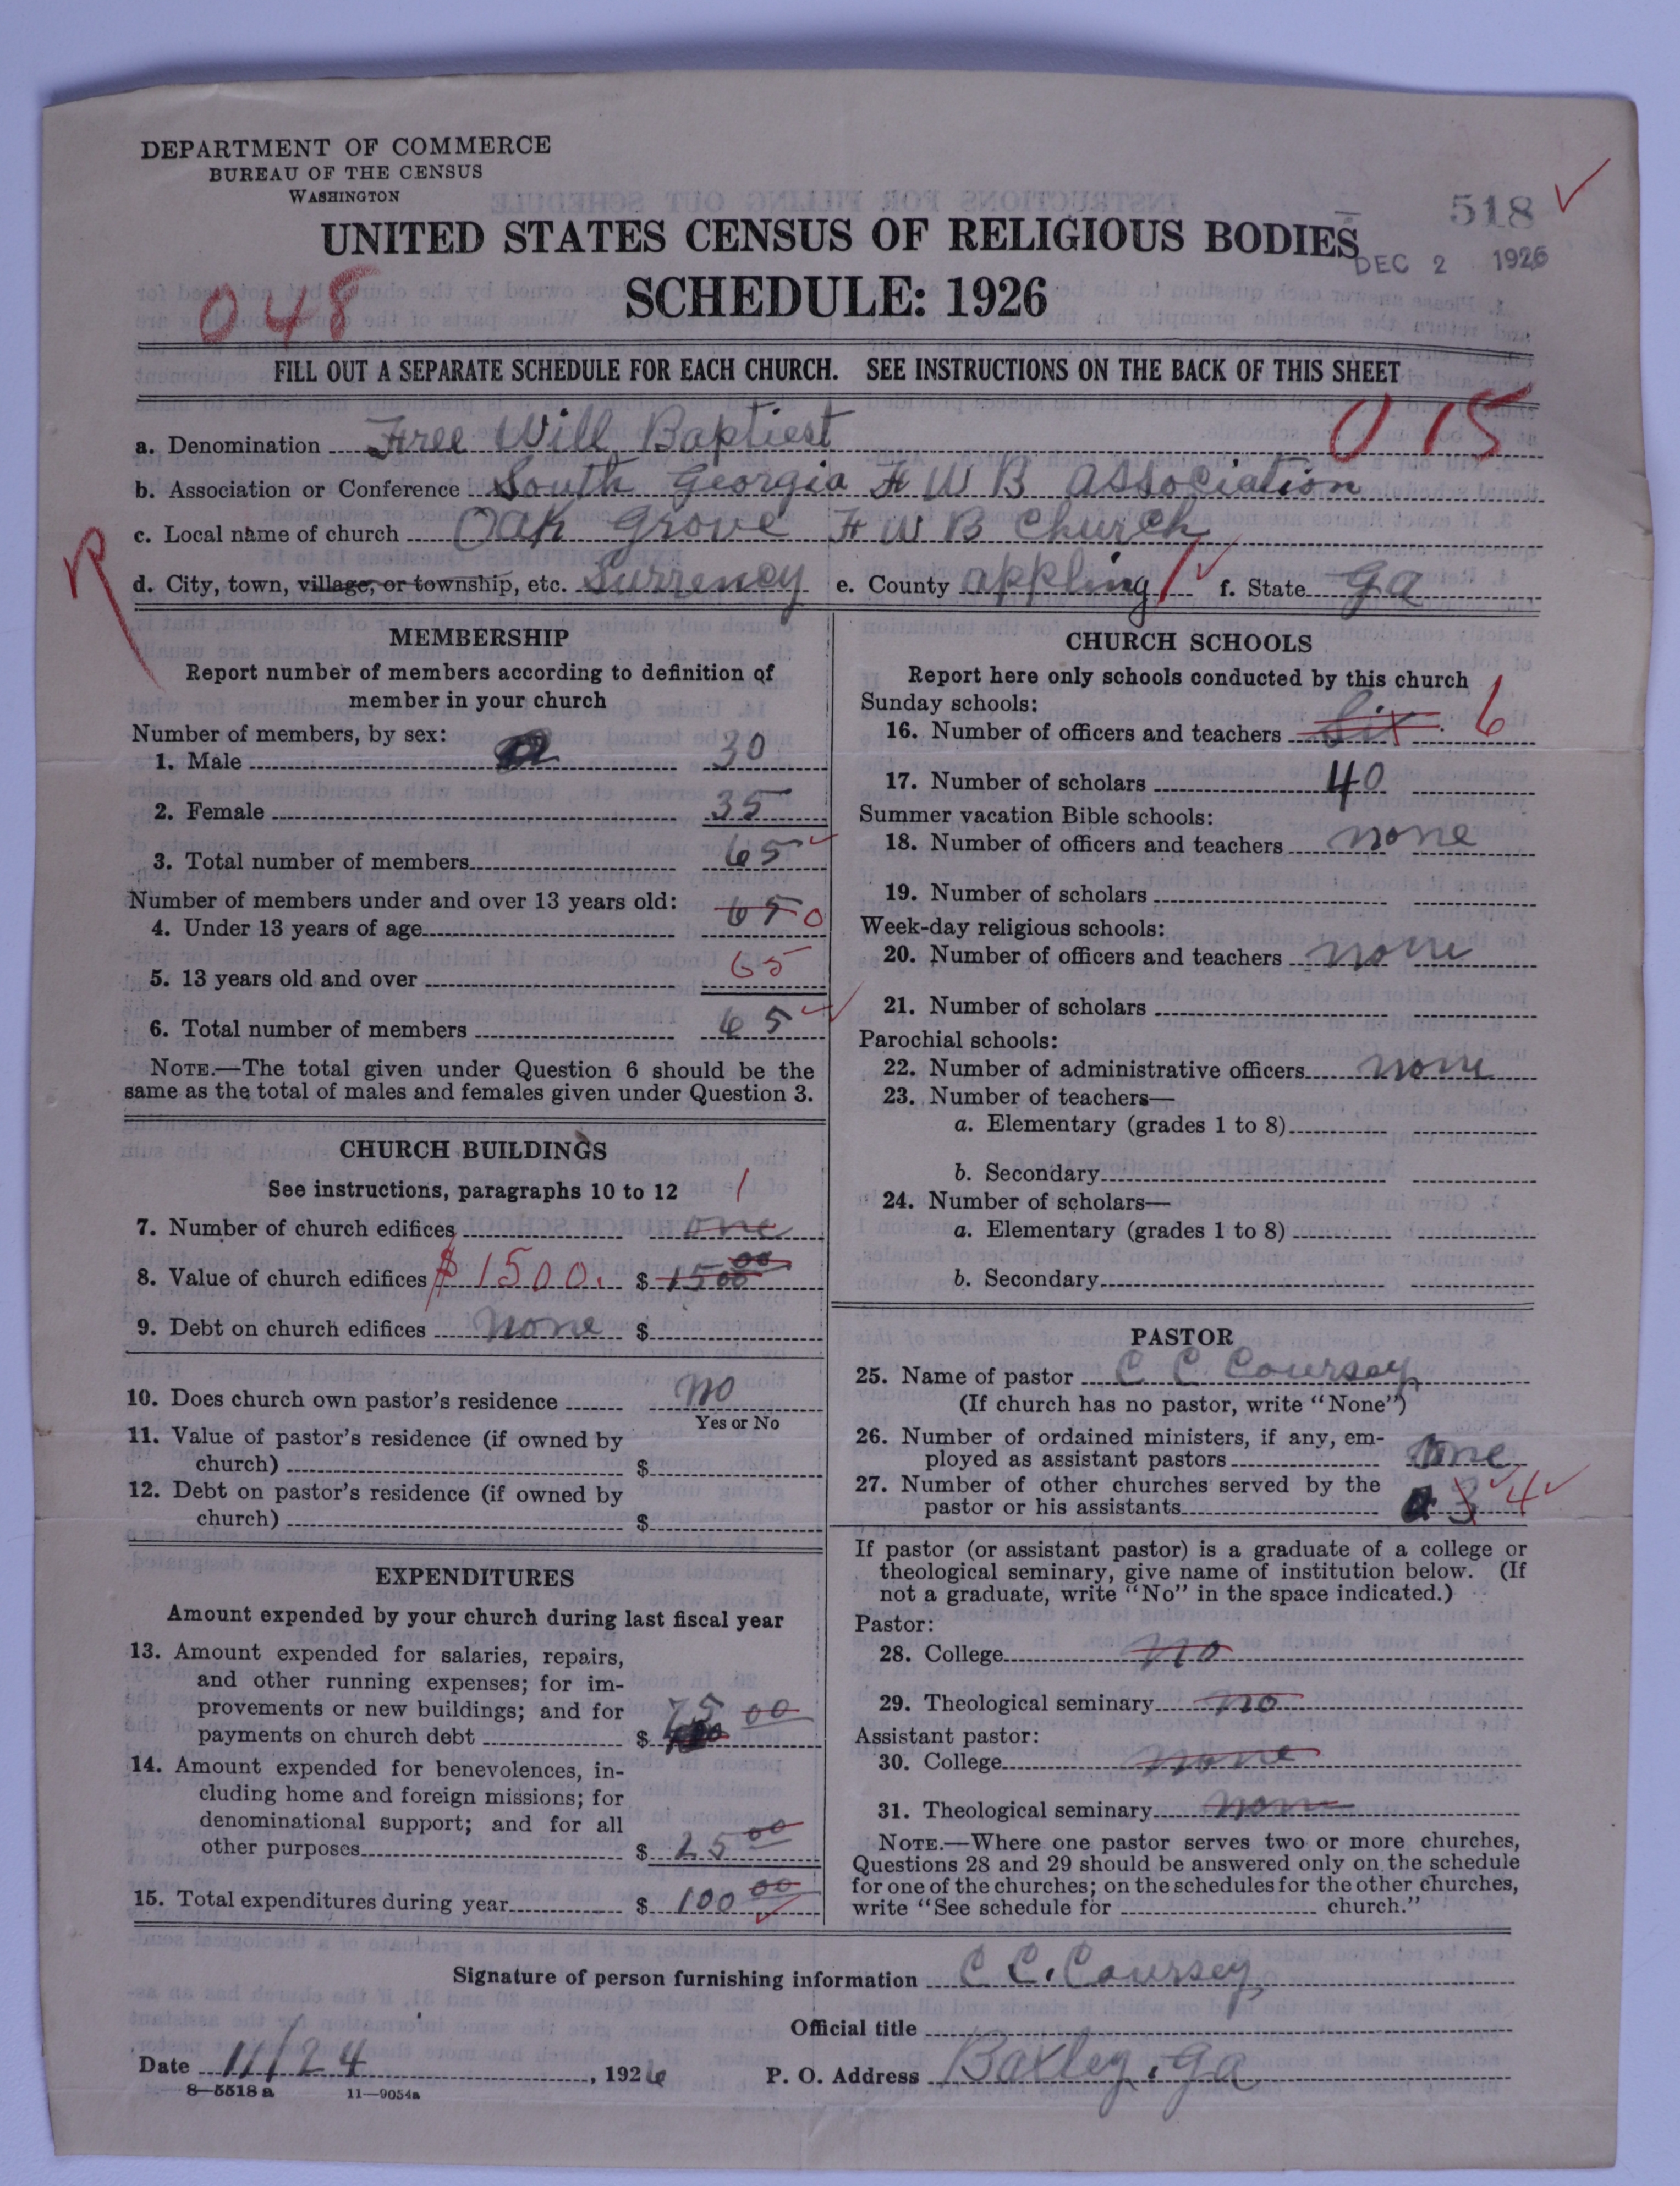 DEPARTMENT OF COMMERCE
BUREAU OF THE CENSUS
WASHINGTON
518
UNITED STATES CENSUS OF RELIGIOUS BODIES
DEC 2 1926
SCHEDULE: 1926
048
FILL OUT A SEPARATE SCHEDULE FOR EACH CHURCH. SEE INSTRUCTIONS ON THE BACK OF THIS SHEET
015
a. Denomination Free Will Baptiest
b. Association or Conference South Georgia F W B Association
c. Local name of church Oak Grove F W B Church
R
d. City, town, village, or township, etc. Surrency e. County appling f. State Ga
MEMBERSHIP
Report number of members according to definition of
member in your church
Number of members, by sex:
1. Male 30
2. Female 35
3. Total number of members 65
Number of members under and over 13 years old:
4. Under 13 years of age 65 0
5. 13 years old and over 65
6. Total number of members 65
NOTE.—The total given under Question 6 should be the
same as the total of males and females given under Question 3.
CHURCH BUILDINGS
See instructions, paragraphs 10 to 12
7. Number of church edifices one 1
8. Value of church edifices $1500. $ 1500 00
9. Debt on church edifices none $
10. Does church own pastor's residence no
Yes or No
11. Value of pastor's residence (if owned by
church) $
12. Debt on pastor's residence (if owned by
church) $
EXPENDITURES
Amount expended by your church during last fiscal year
13. Amount expended for salaries, repairs,
and other running expenses; for im-
provements or new buildings; and for
payments on church debt $ 75 00
14. Amount expended for benevolences, in-
cluding home and foreign missions; for
denominational support; and for all
other purposes $ 25 00
15. Total expenditures during year $ 100 00
CHURCH SCHOOLS
Report here only schools conducted by this church
Sunday schools:
16. Number of officers and teachers Six 6
17. Number of scholars 40
Summer vacation Bible schools:
18. Number of officers and teachers none
19. Number of scholars
Week-day religious schools:
20. Number of officers and teachers none
21. Number of scholars
Parochial schools:
22. Number of administrative officers none
23. Number of teachers—
a. Elementary (grades 1 to 8)
b. Secondary
24. Number of scholars—
a. Elementary (grades 1 to 8)
b. Secondary
PASTOR
25. Name of pastor C C Coursey
(If church has no pastor, write "None")
26. Number of ordained ministers, if any, em-
ployed as assistant pastors one
27. Number of other churches served by the
pastor or his assistants 3 4
If pastor (or assistant pastor) is a graduate of a college or
theological seminary, give name of institution below. (If
not a graduate, write "No" in the space indicated.)
Pastor:
28. College no
29. Theological seminary no
Assistant pastor:
30. College none
31. Theological seminary none
NOTE.—Where one pastor serves two or more churches,
Questions 28 and 29 should be answered only on the schedule
for one of the churches; on the schedules for the other churches,
write "See schedule for church."
Signature of person furnishing information C C. Coursey
Official title
Date 11/24, 1926 P. O. Address Baxley, Ga
8—5518 a 11—9054a